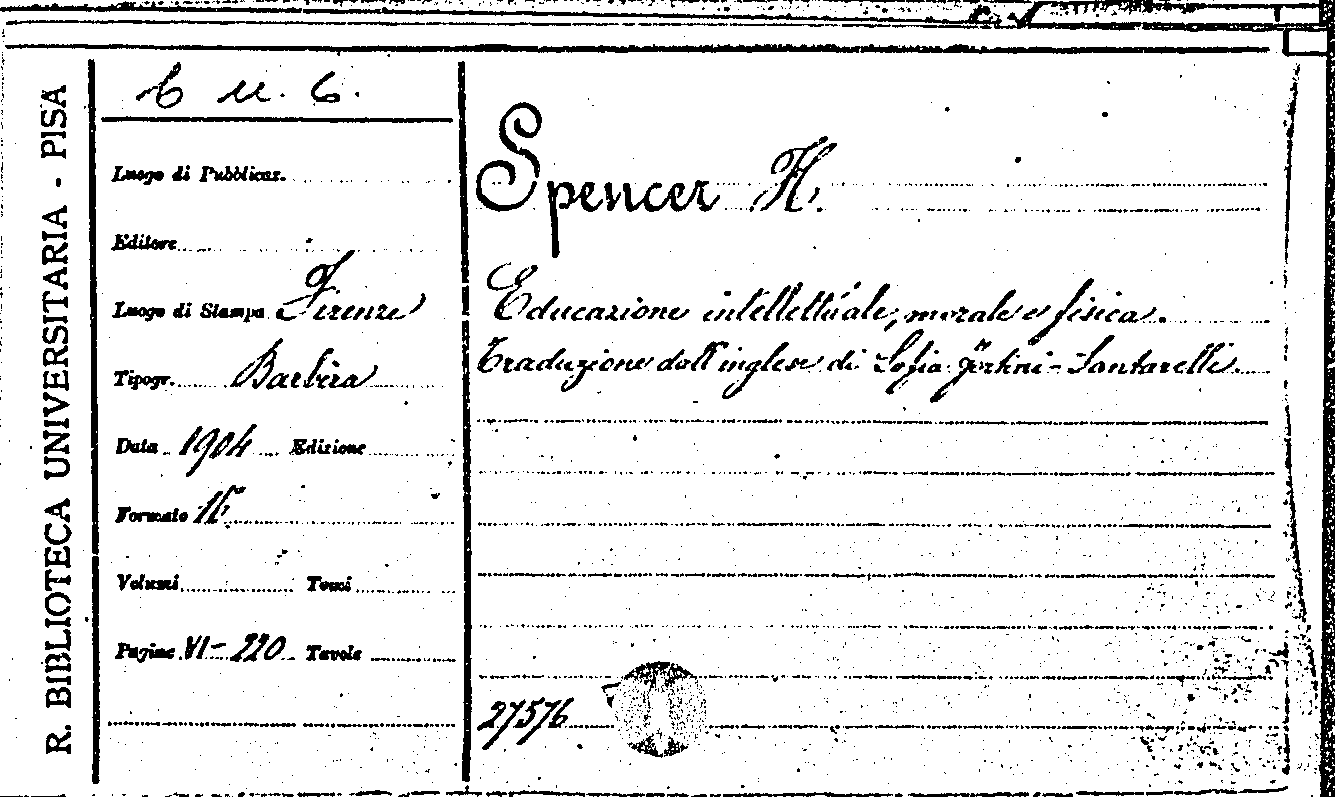 R. BIBLIOTECA UNIVERSITARIA - PISA
C u. 6.
Luogo di Pubblicaz.
Editore
Luogo di Stampa Firenze
Tipogr. Barbèra
Data 1904 Edizione
Formato 16°
Volumi Tomi
Pagine VI-220 Tavole
Spencer H.
Educazione intellettuale, morale e fisica.
Traduzione dall'inglese di Sofia Fortini-Santarelli.
27576